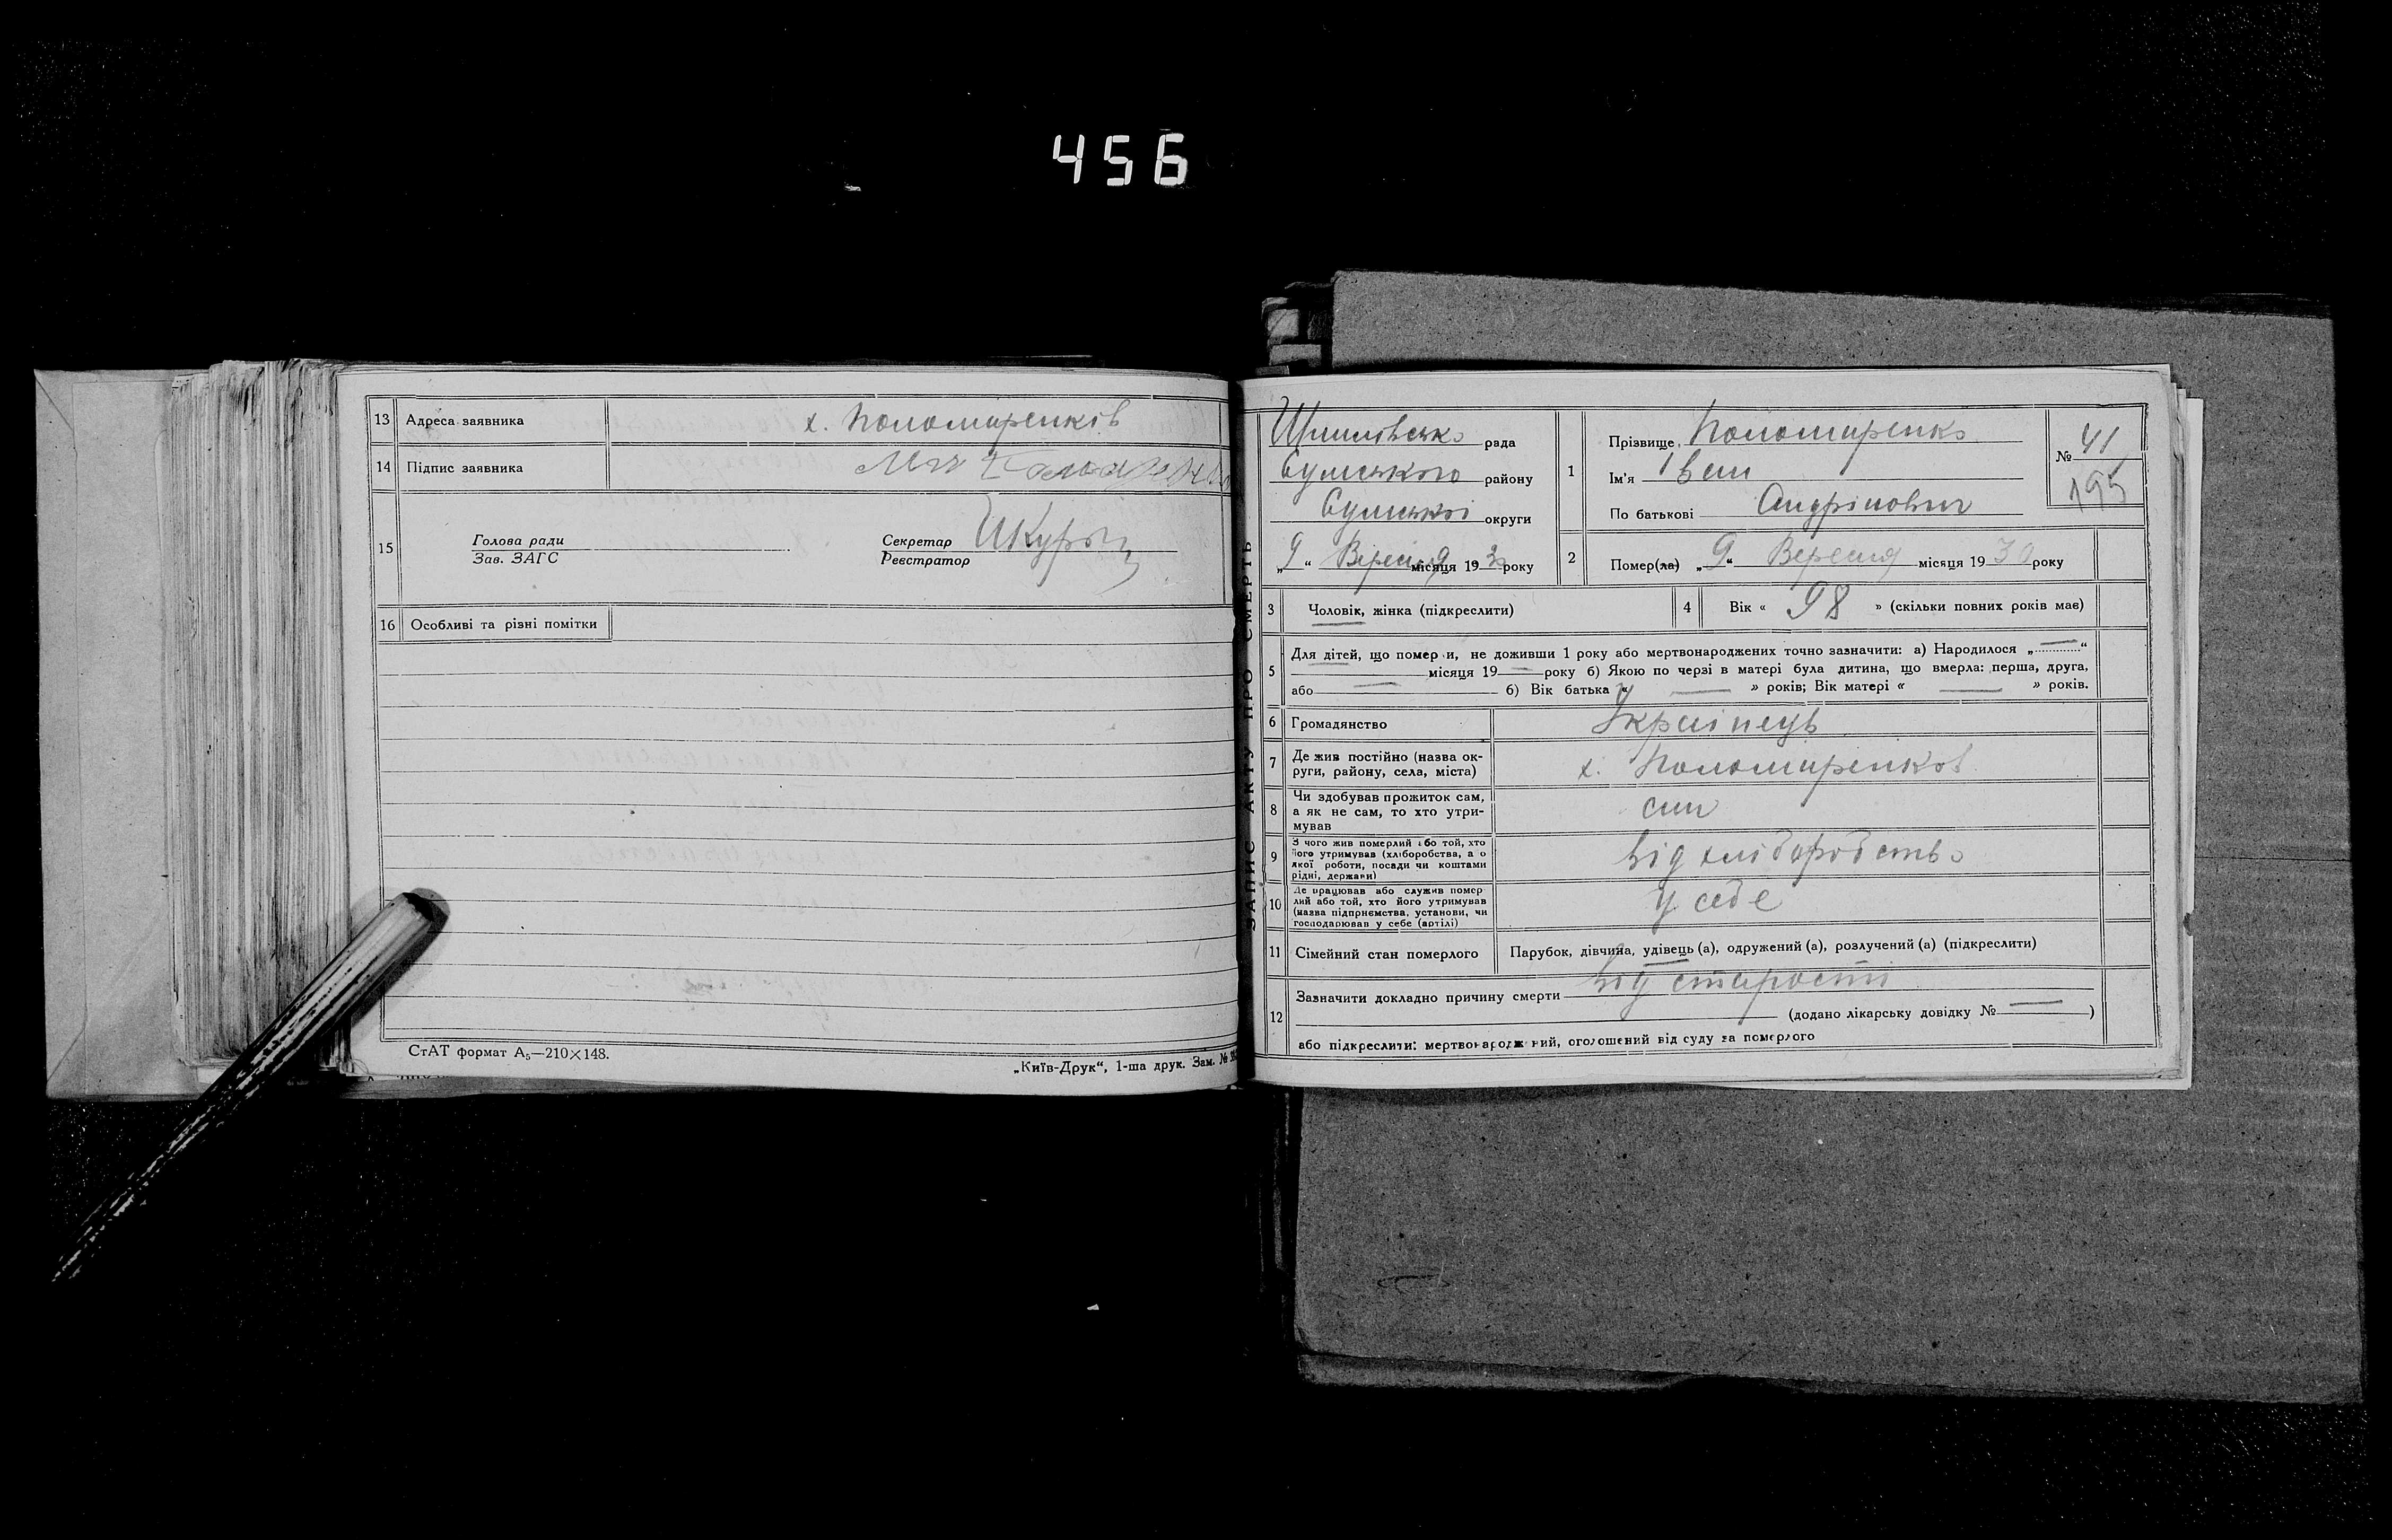 456
13 Адреса заявника х. Пономаренків
14 Підпис заявника
15 Голова ради
Зав. ЗАГС
Секретар
Реєстратор
16 Особливі та різні помітки
СтАТ формат А₅—210×148.
„Київ-Друк“, 1-ша друк. Зам. №
ЗАПИС АКТУ ПРО СМЕРТЬ
рада
Сумського району
Сумської округи
„ 9 “ Вересня місяця 19 30 року
1 Прізвище Пономаренко
Ім'я Іван
По батькові Андрійович
№ 41
195
2 Помер(ла) „ 9 “ Вересня місяця 19 30 року
3 Чоловік, жінка (підкреслити)
4 Вік « 98 » (скільки повних років має)
5 Для дітей, що померли, не доживши 1 року або мертвонароджених точно зазначити: а) Народилося „ — “
— місяця 19 — року б) Якою по черзі в матері була дитина, що вмерла: перша, друга,
або — б) Вік батька « — » років; Вік матері « — » років.
6 Громадянство Українець
7 Де жив постійно (назва ок-
руги, району, села, міста) х. Пономаренков
8 Чи здобував прожиток сам,
а як не сам, то хто утри-
мував сам
9 З чого жив померлий або той, хто
його утримував (хліборобства, а о
якої роботи, посади чи коштами
рідні, держави) від хліборобство
10 Де працював або служив помер
лий або той, хто його утримував
(назва підприємства, установи, чи
господарював у себе (артілі) у себе
11 Сімейний стан померлого Парубок, дівчина, удівець (а), одружений (а), розлучений (а) (підкреслити)
12 Зазначити докладно причину смерти від старости
(додано лікарську довідку № — )
або підкреслити: мертвонароджений, оголошений від суду за померлого